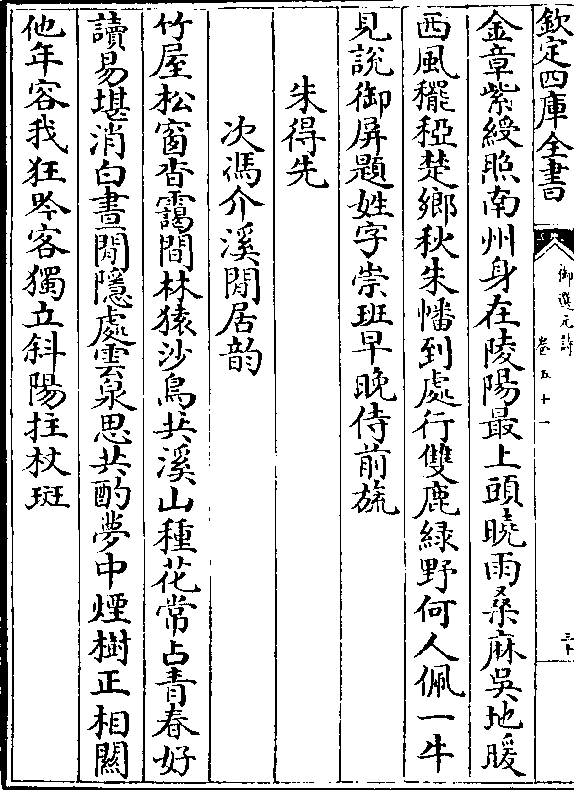 欽定四庫全書
御選元詩
卷五十一
三十
金章紫綬照南州身在陵陽最上頭曉雨桑麻吳地暖
西風䆉稏楚鄉秋朱幡到處行雙鹿緑野何人佩一牛
見說御屏題姓字崇班早晚侍前旒
朱得先
次馮介溪閒居韵
竹屋松窗杳靄間林猿沙鳥共溪山種花常占青春好
讀易堪消白晝閒隱處雲泉思共酌夢中煙樹正相關
他年容我狂吟客獨立斜陽拄杖斑